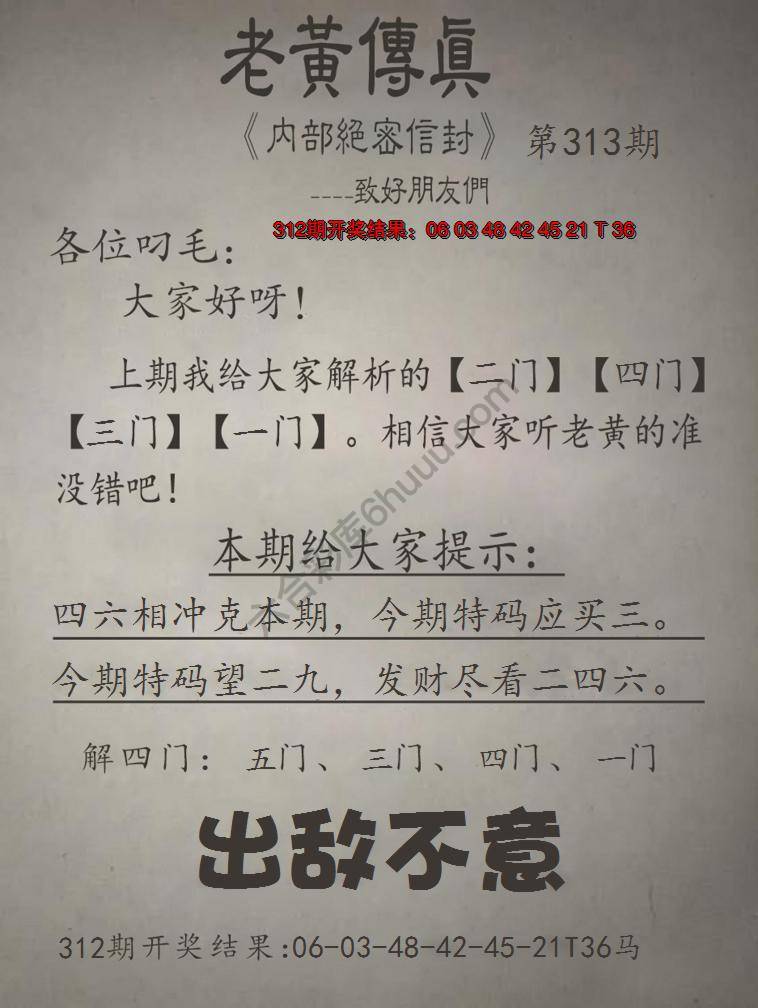 老黃傳真
《内部絕密信封》 第313期
----致好朋友們
312期开奖结果：06 03 48 42 45 21 T 36
各位叼毛：
大家好呀！
上期我给大家解析的【二门】【四门】
【三门】【一门】。相信大家听老黄的准
没错吧！
本期给大家提示：
四六相冲克本期，今期特码应买三。
今期特码望二九，发财尽看二四六。
解四门：五门、三门、四门、一门
出敌不意
312期开奖结果:06-03-48-42-45-21T36马
六合彩库6huuu.com